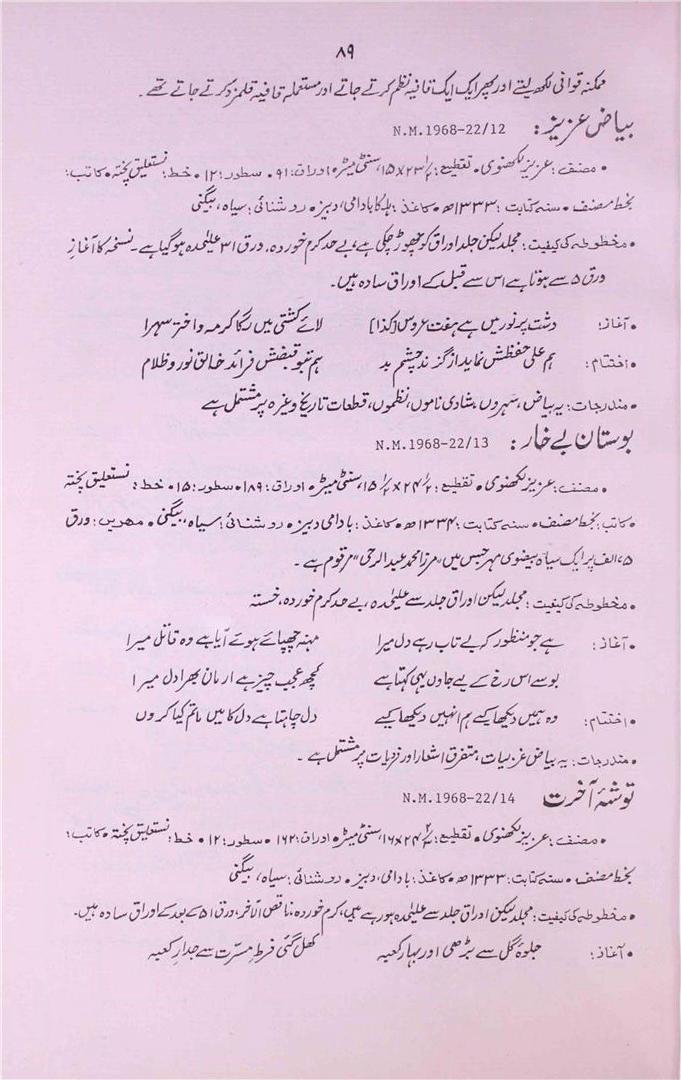 ۸۹
ممکنہ قوافی لکھ لیتے اور پھر ایک ایک قافیہ نظم کرتے جاتے اور مستعملہ قافیہ قلمزد کرتے جاتے تھے۔
بیاض عزیز: N.M.1968-22/12
• مصنف: عزیز لکھنوی • تقطیع: ۲۳ ۱/۲ × ۱۵، سنٹی میٹر • اوراق: ۹۱ • سطور: ۱۲ • خط: نستعلیق پختہ • کاتب:
بخط مصنف • سنہ کتابت: ۱۳۳۳ھ • کاغذ: ہلکا بادامی، دبیز • روشنائی: سیاہ، بیگنی
• مخطوطہ کی کیفیت: مجلد لیکن جلد اوراق کو چھوڑ چکی ہے، بے حد کرم خوردہ، ورق ۳۱ علیٰحدہ ہوگیا ہے۔ نسخہ کا آغاز
ورق ۵ سے ہوتا ہے اس سے قبل کے اوراق سادہ ہیں۔
• آغاز: دشت پر نور میں ہے ہفت عروس [کذا] لائے کشتی میں لگا کر مہ و اختر سہرا
• اختتام: ہم علی حفظش نماید از گزند چشم بد ہم نبو قبضش فزائد خالق نور و ظلام
• مندرجات: یہ بیاض، سہروں، شادی ناموں، نظموں، قطعات تاریخ وغیرہ پر مشتمل ہے
بوستان بے خار: N.M.1968-22/13
• مصنف: عزیز لکھنوی • تقطیع: ۲۴ ۱/۲ × ۱۵ ۱/۲، سنٹی میٹر • اوراق: ۱۸۹ • سطور: ۱۵ • خط: نستعلیق پختہ
• کاتب: بخط مصنف • سنہ کتابت: ۱۳۳۴ھ • کاغذ: بادامی دبیز • روشنائی: سیاہ، بیگنی • مہریں: ورق
۷۵ الف پر ایک سیاہ بیضوی مہر جس میں "مرزا محمد عبدالرحیٰ" مرقوم ہے۔
• مخطوطہ کی کیفیت: مجلد لیکن اوراق جلد سے علیٰحدہ، بے حد کرم خوردہ، خستہ
• آغاز: ہے جو منظور کہ بے تاب رہے دل میرا مہنہ چھپائے ہوئے آیا ہے وہ قاتل میرا
بوسے اس رخ کے لیے جاوں یہی کہتا ہے کچھ عجیب چیز ہے ارمان بھرا دل میرا
• اختتام: وہ ہمیں دیکھا کیے ہم انہیں دیکھا کیے دل چاہتا ہے دل کا میں ماتم کیا کروں
• مندرجات: یہ بیاض غزلیات، متفرق اشعار اور فردیات پر مشتمل ہے۔
توشۂ آخرت N.M.1968-22/14
• مصنف: عزیز لکھنوی • تقطیع: ۲۴ ۲/۳ × ۱۶، سنٹی میٹر • اوراق: ۱۶۲ • سطور: ۱۲ • خط: نستعلیق پختہ • کاتب:
بخط مصنف • سنہ کتابت: ۱۳۳۳ھ • کاغذ: بادامی، دبیز • روشنائی: سیاہ، بیگنی
• مخطوطہ کی کیفیت: مجلد لیکن اوراق جلد سے علیٰحدہ ہو رہے ہیں، کرم خوردہ، ناقص الآخر، ورق ۵۱ کے بعد کے اوراق سادہ ہیں۔
• آغاز: جلوۂ گل سے بڑھی اور بہار کعبہ کھل گئی فرط مسرت سے جدار کعبہ